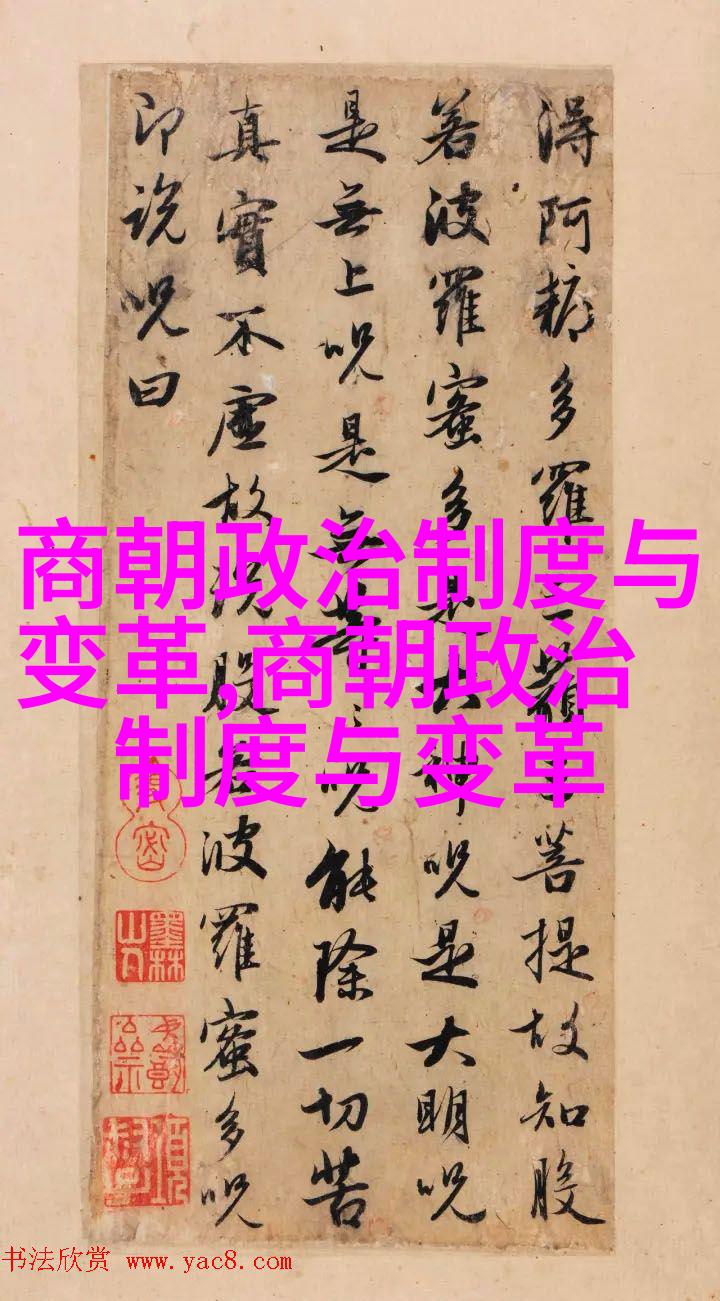 得阿耨多羅三藐三菩提故知般
若波羅蜜多是大神呪是大明呪
是無上呪是無等等呪能除一切苦
真實不虛故說般若波羅蜜多呪
即說呪曰
商朝政治制度与
变革,商朝政治
制度与变革
墨林
山人
书法欣赏 www.yac8.com